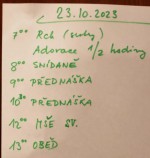 23.10.2023
7⁰⁰ Rch (
Adorace 1/2 hodiny
8⁰⁰ SNÍDANĚ
9⁰⁰ PŘEDNÁŠKA
10³⁰ PŘEDNÁŠKA
12⁰⁰ MŠE SV.
13⁰⁰ OBĚD